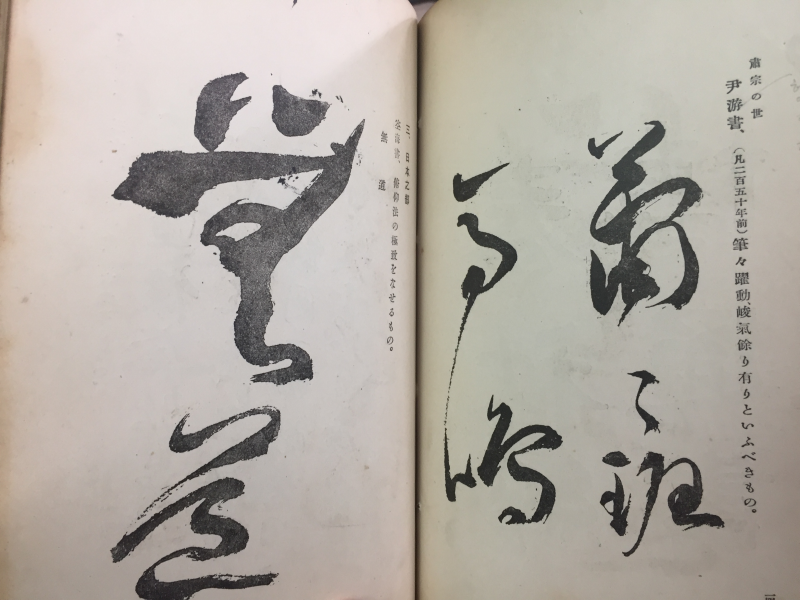 肅宗の世
尹游書、(凡二百五十年前)筆々躍動、峻氣餘り有りといふべきもの。
蕭〻班
馬鳴
三、日本之部
空海書、俯仰法の極致をなせるもの。
無道
無道